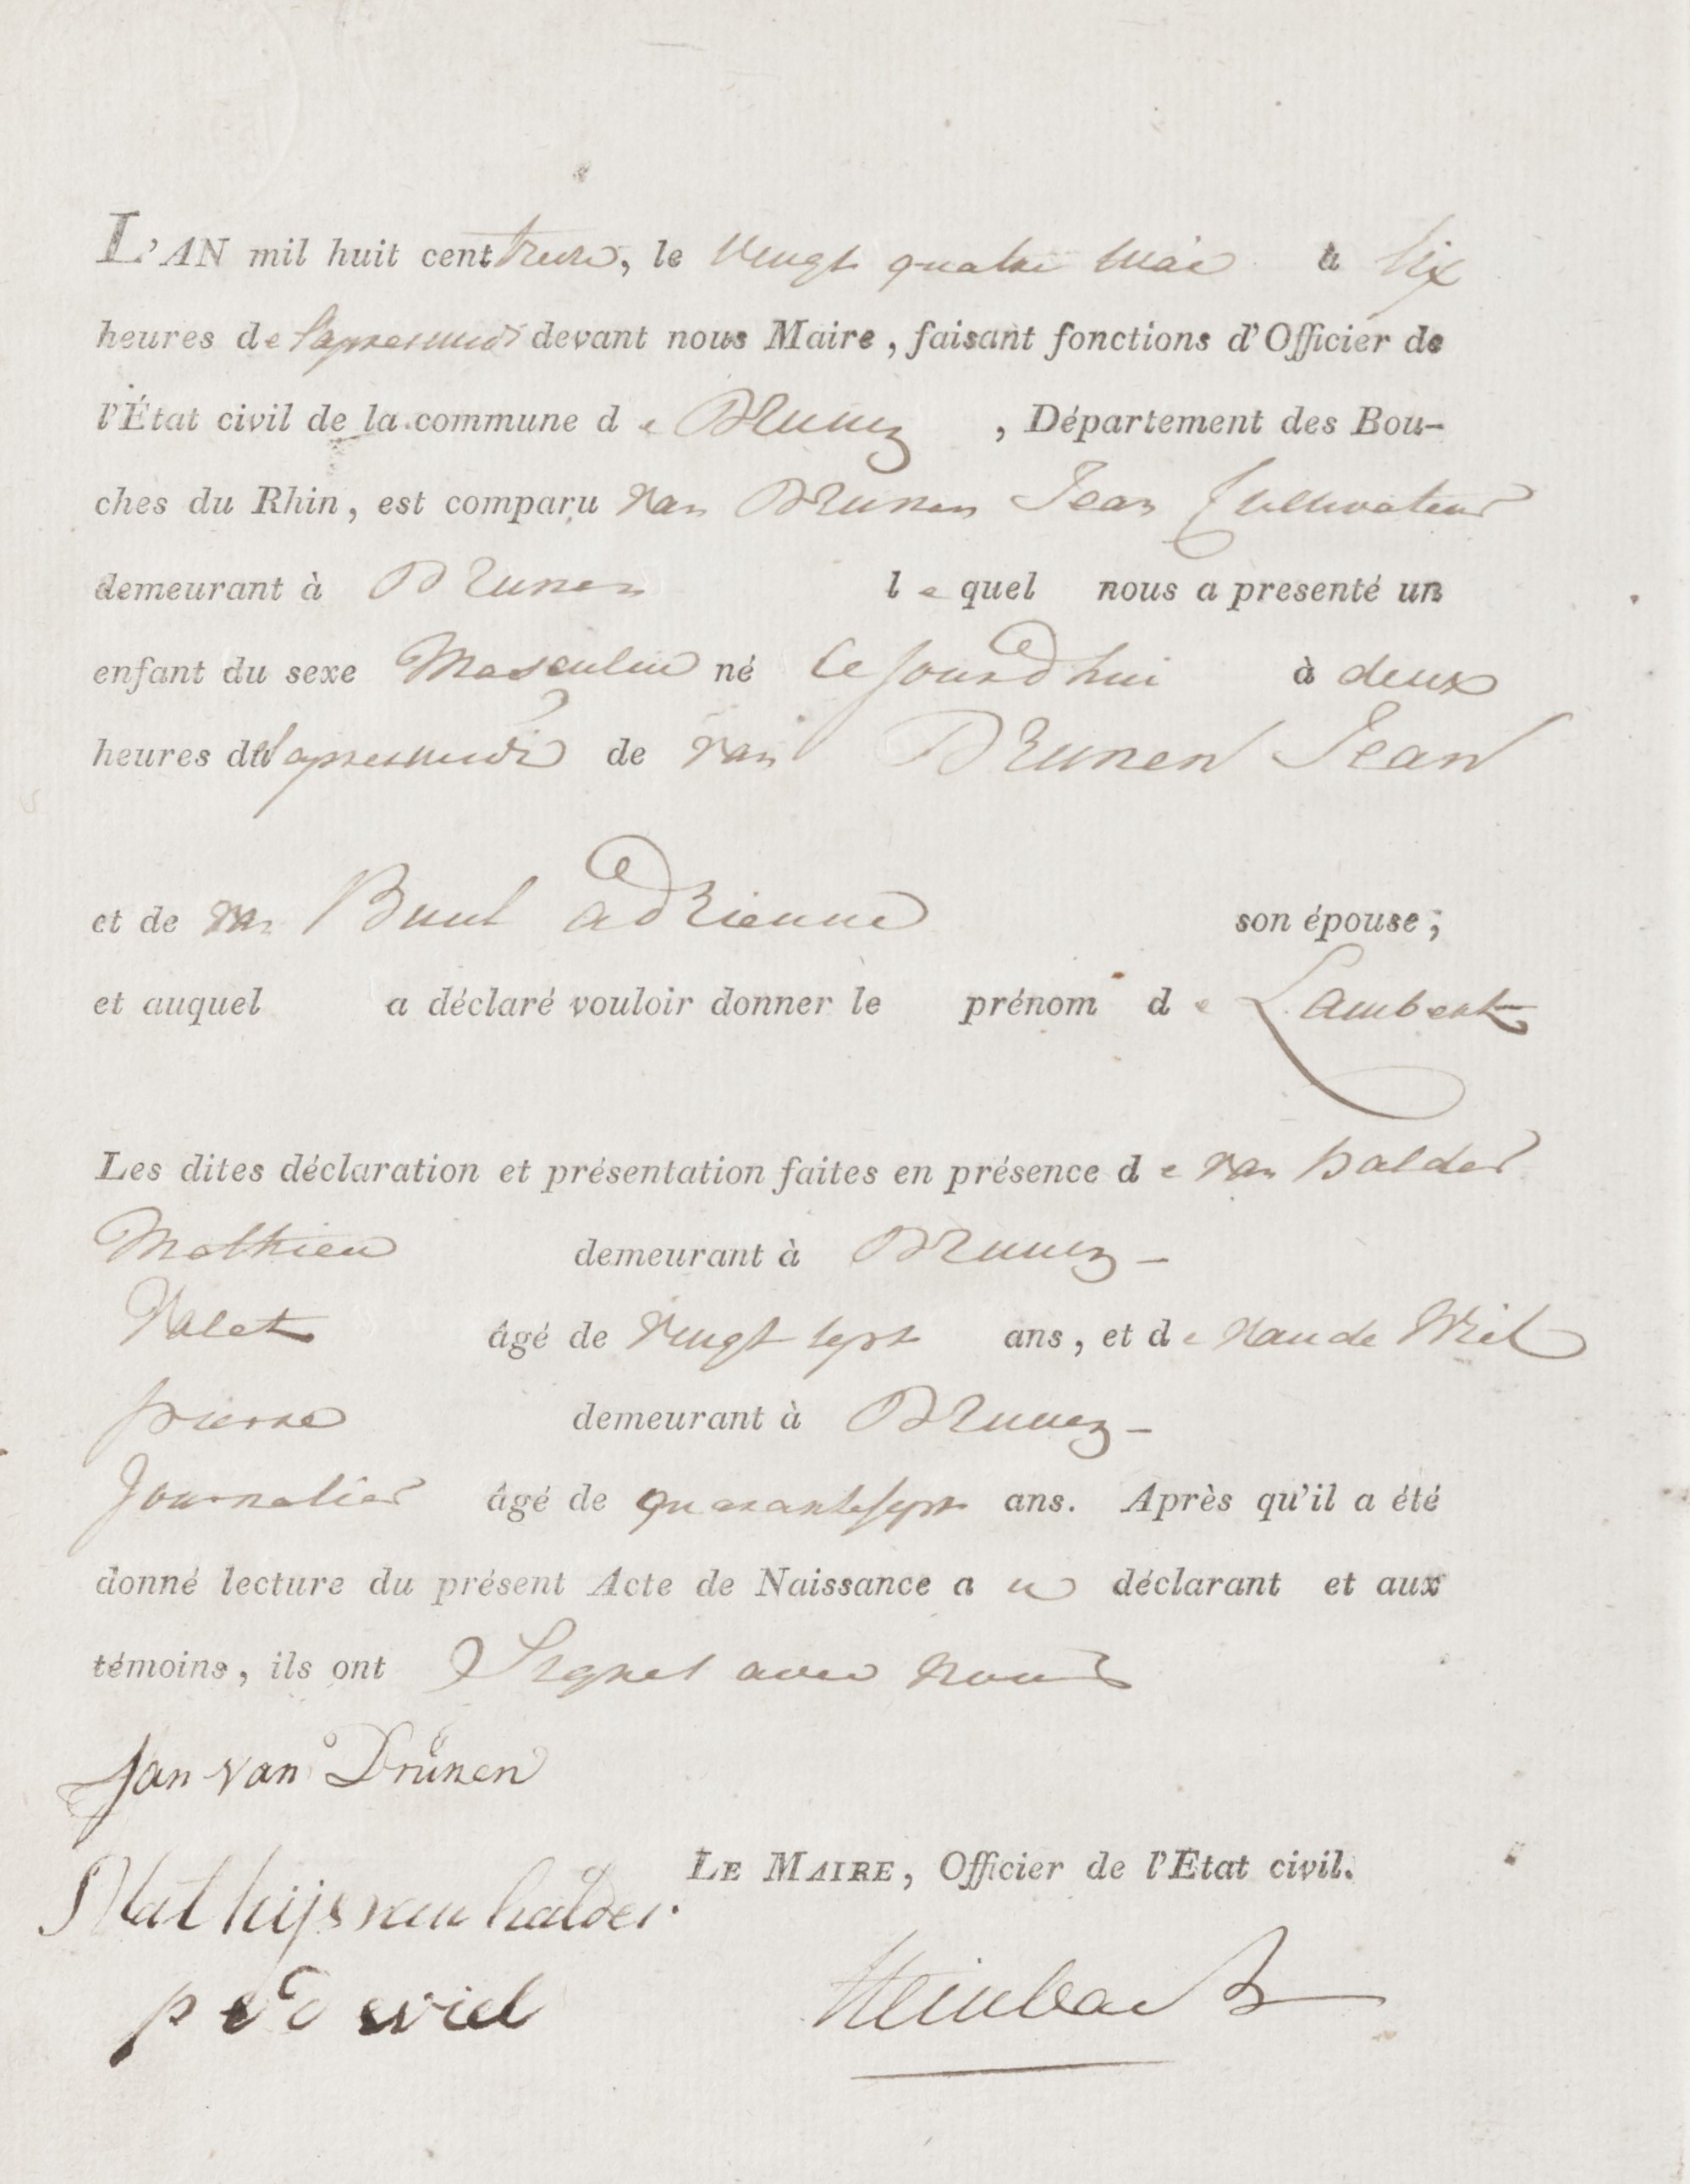 L'AN mil huit cent treize, le vingt quatre mai à six
heures de l'apresmidi devant nous Maire, faisant fonctions d'Officier de
l'État civil de la commune de Drunen, Département des Bou-
ches du Rhin, est comparu van Drunen Jean Cultivateur
demeurant à Drunen lequel nous a presenté un
enfant du sexe Masculin né cejourdhui à deux
heures de l'apresmidi de van Drunen Jean
et de van Buul adrienne son épouse;
et auquel a déclaré vouloir donner le prénom de Lambert
Les dites déclaration et présentation faites en présence de van halder
Mathieu demeurant à Drunen -
Valet âgé de vingt sept ans, et de van de Wiel
pierre demeurant à Drunen -
Journalier âgé de quarantesept ans. Après qu'il a été
donné lecture du présent Acte de Naissance a u déclarant et aux
témoins, ils ont Signet avec nous
Jan van Drünen
Mathijs van halder.
LE MAIRE, Officier de l'Etat civil.
p v d wiel